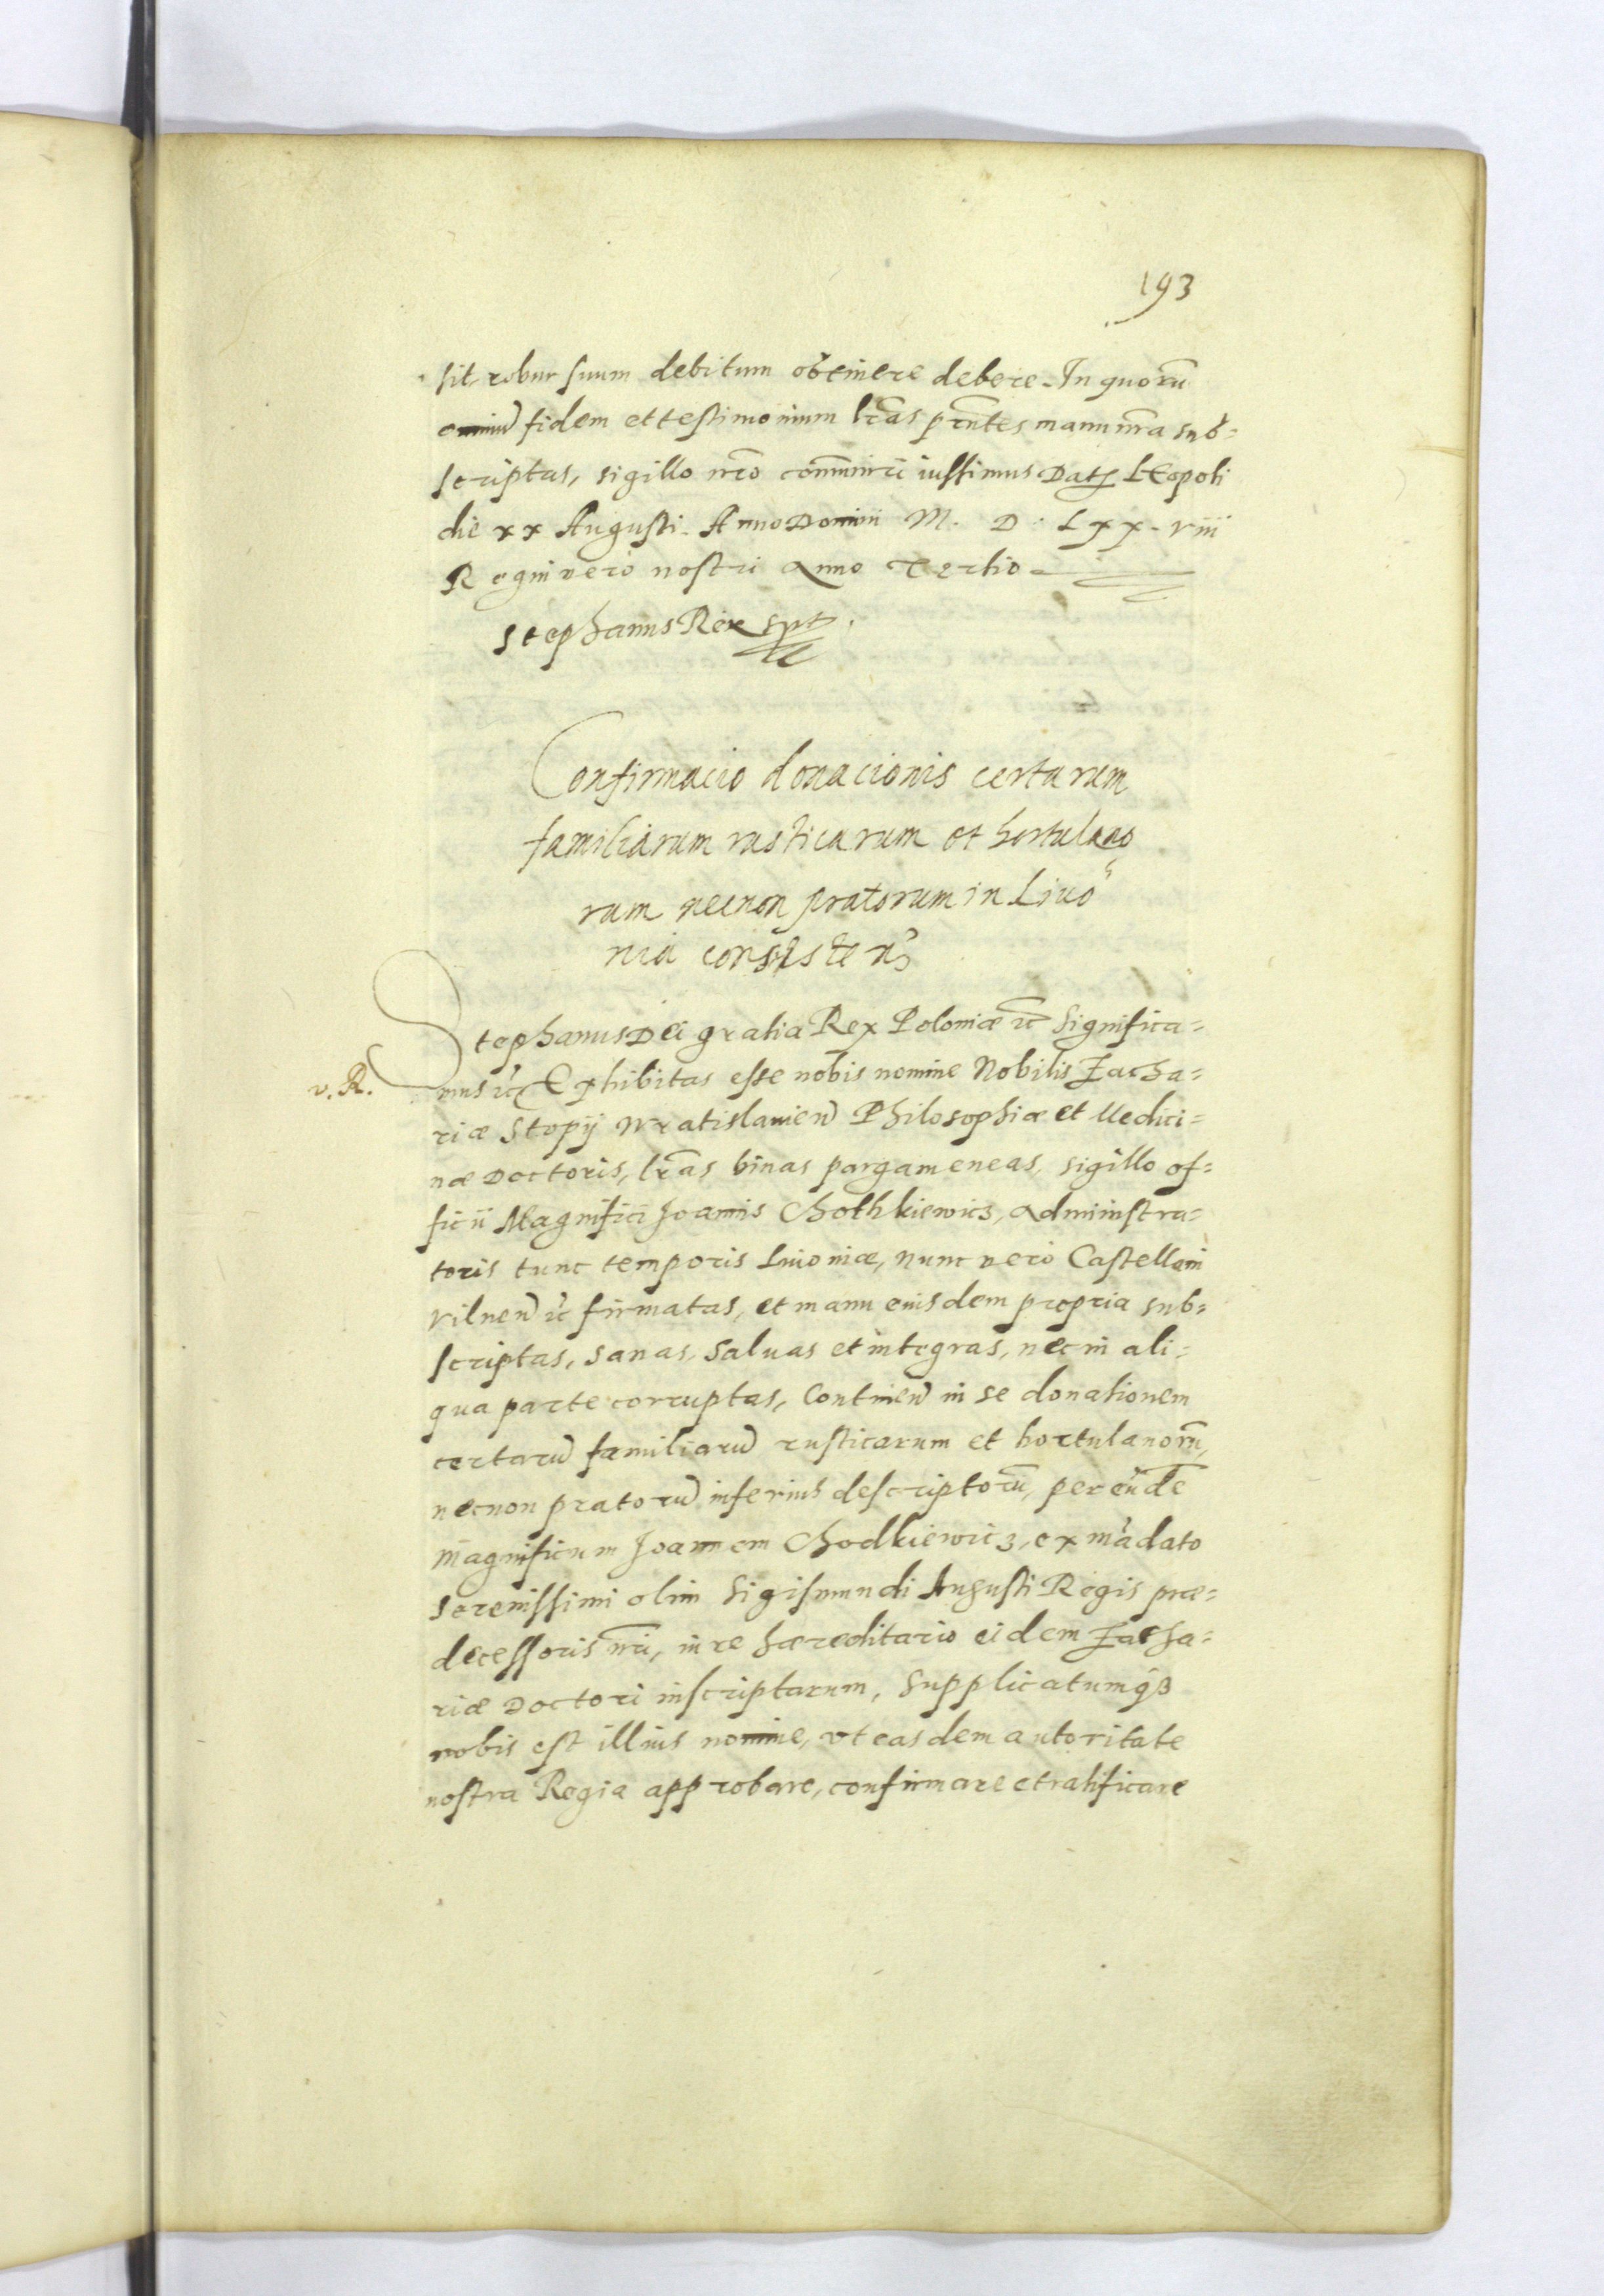 193
sit robur suum debitum obtinere debere. In quorũ
omniũ fidem et testimonium lr̃as pr̃ntes manu nr̃a sub=
scriptas, sigillo nr̃o com̃muniri iussimus. Datũ Leopoli
die xx Augusti. Anno Domini M. D. Lxx. viii
Regni vero nostri Anno Tertio
Stephanus Rex spt.
Confirmacio donacionis certarum
familiarum rusticarum et hortulano
rum necnon pratorum in Livo
nia consisteñ
Stephanus Dei gratia Rex Poloniæ etc̃ Significa=
v. R.
mus etc̃ Exhibitas esse nobis nomine Nobilis Zacha=
riæ Stopij Wratislauieñ Philosophiæ et Medici=
næ Doctoris, lr̃as binas pargameneas, sigillo of=
ficii Magnifici Joannis Chothkiewicz, Administra=
toris tunc temporis Liuoniæ, nunc vero Castellani
Vilneñ etc̃ firmatas, et manu eiusdem propria sub=
scriptas, sanas, saluas et integras, nec in ali=
qua parte corruptas, Contineñ in se donationem
certarũ familiarũ rusticarum et hortulanorũ,
necnon pratorũ inferius descriptorũ, per eũde
magnificum Joannem Chodkiewicz, ex mãdato
Serenissimi olim Sigismundi Augusti Regis præ=
decessoris nr̃i, in re hæreditario eidem Zacha=
riæ Doctori inscriptarum, Supplicatumqꝫ
nobis est illius nomine, vt easdem autoritate
nostra Regia approbare, confirmare et ratificare